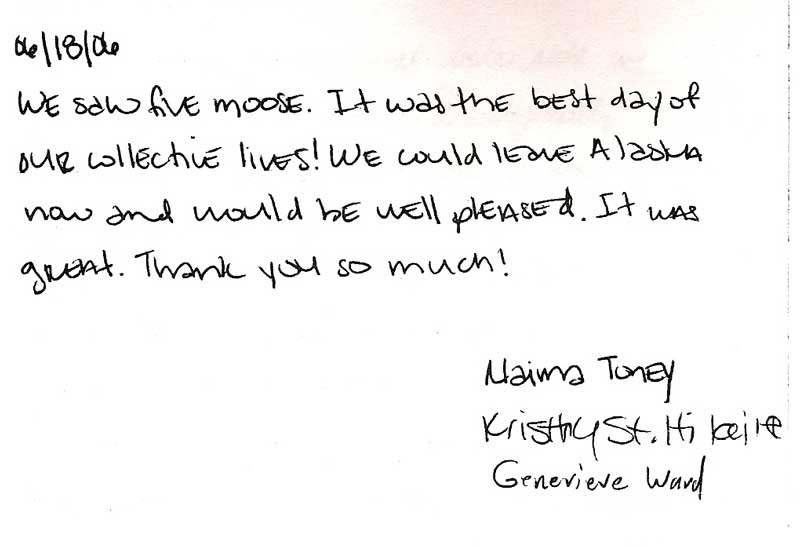 06/18/06
WE saw five moose. It was the best day of
our collective lives! We could leave Alaska
now and would be well pleased. It was
great. Thank you so much!
Naima Toney
St.
Genevieve Ward